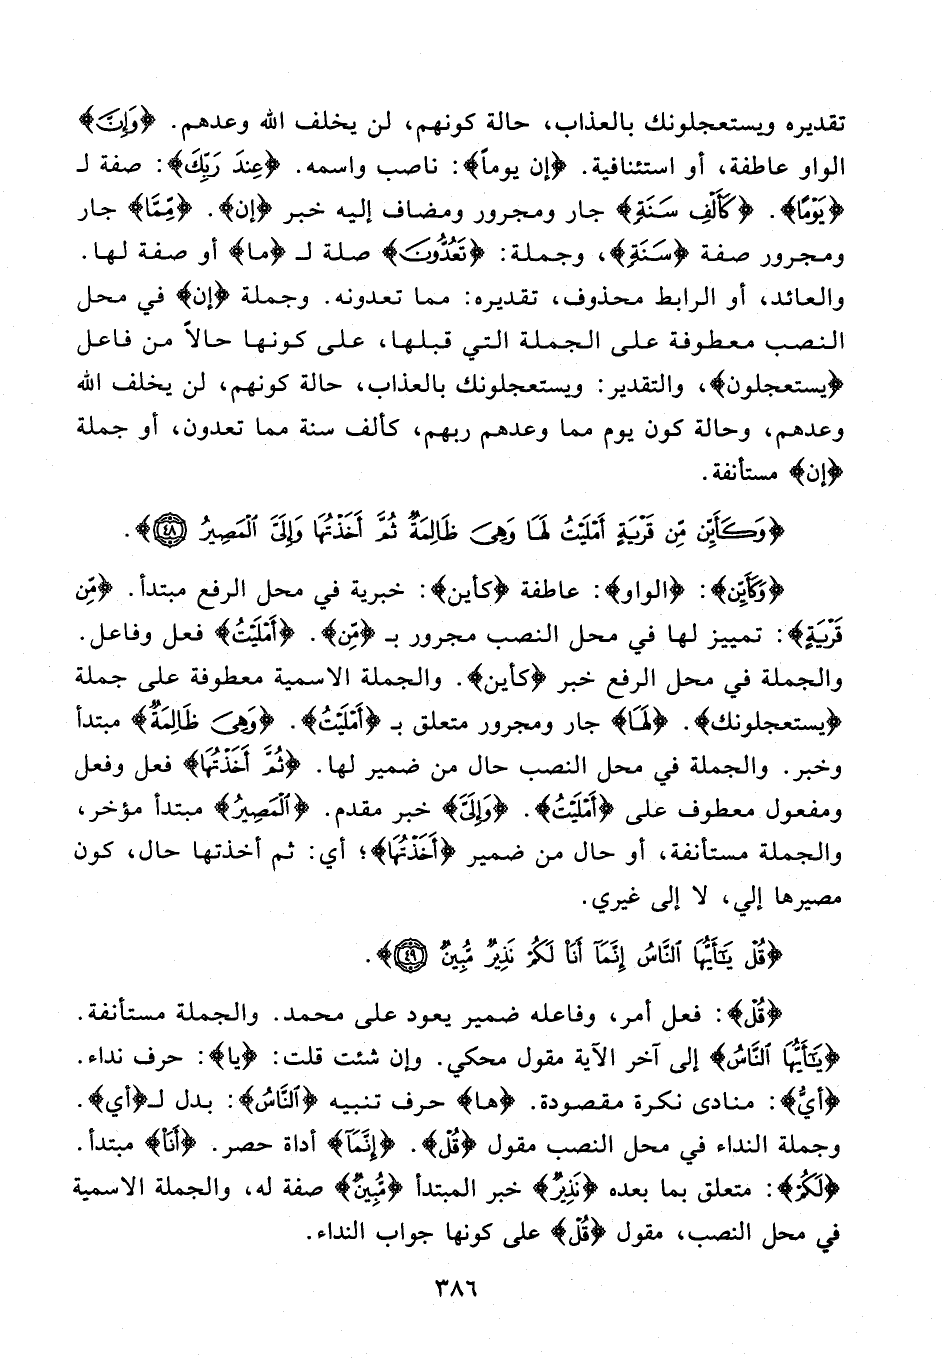 تقديره ويستعجلونك بالعذاب، حالة كونهم، لن يخلف الله وعدهم. ﴿وَإِنَّ﴾
الواو عاطفة، أو استئنافية. ﴿إن يوماً﴾: ناصب واسمه. ﴿عِندَ رَبِّكَ﴾: صفة لـ
﴿يَوْمًا﴾. ﴿كَأَلْفِ سَنَةٍ﴾ جار ومجرور ومضاف إليه خبر ﴿إن﴾. ﴿مِّمَّا﴾ جار
ومجرور صفة ﴿سَنَةٍ﴾، وجملة: ﴿تَعُدُّونَ﴾ صلة لـ ﴿ما﴾ أو صفة لها.
والعائد، أو الرابط محذوف، تقديره: مما تعدونه. وجملة ﴿إن﴾ في محل
النصب معطوفة على الجملة التي قبلها، على كونها حالاً من فاعل
﴿يستعجلون﴾، والتقدير: ويستعجلونك بالعذاب، حالة كونهم، لن يخلف الله
وعدهم، وحالة كون يوم مما وعدهم ربهم، كألف سنة مما تعدون، أو جملة
﴿إن﴾ مستأنفة.
﴿وَكَأَيِّن مِّن قَرْيَةٍ أَمْلَيْتُ لَهَا وَهِىَ ظَالِمَةٌ ثُمَّ أَخَذْتُهَا وَإِلَىَّ ٱلْمَصِيرُ ٤٨﴾.
﴿وَكَأَيِّن﴾: ﴿الواو﴾: عاطفة ﴿كأين﴾: خبرية في محل الرفع مبتدأ. ﴿مِّن
قَرْيَةٍ﴾: تمييز لها في محل النصب مجرور بـ ﴿مِّن﴾. ﴿أَمْلَيْتُ﴾ فعل وفاعل.
والجملة في محل الرفع خبر ﴿كأين﴾. والجملة الاسمية معطوفة على جملة
﴿يستعجلونك﴾. ﴿لَهَا﴾ جار ومجرور متعلق بـ ﴿أَمْلَيْتُ﴾. ﴿وَهِىَ ظَالِمَةٌ﴾ مبتدأ
وخبر. والجملة في محل النصب حال من ضمير لها. ﴿ثُمَّ أَخَذْتُهَا﴾ فعل وفعل
ومفعول معطوف على ﴿أَمْلَيْتُ﴾. ﴿وَإِلَىَّ﴾ خبر مقدم. ﴿ٱلْمَصِيرُ﴾ مبتدأ مؤخر،
والجملة مستأنفة، أو حال من ضمير ﴿أَخَذْتُهَا﴾؛ أي: ثم أخذتها حال، كون
مصيرها إلي، لا إلى غيري.
﴿قُلْ يَٰٓأَيُّهَا ٱلنَّاسُ إِنَّمَآ أَنَا۠ لَكُمْ نَذِيرٌ مُّبِينٌ ٤٩﴾.
﴿قُلْ﴾: فعل أمر، وفاعله ضمير يعود على محمد. والجملة مستأنفة.
﴿يَٰٓأَيُّهَا ٱلنَّاسُ﴾ إلى آخر الآية مقول محكي. وإن شئت قلت: ﴿يا﴾: حرف نداء.
﴿أَيُّ﴾: منادى نكرة مقصودة. ﴿ها﴾ حرف تنبيه ﴿ٱلنَّاسُ﴾: بدل لـ﴿أي﴾.
وجملة النداء في محل النصب مقول ﴿قُلْ﴾. ﴿إِنَّمَآ﴾ أداة حصر. ﴿أَنَا۠﴾ مبتدأ.
﴿لَكُمْ﴾: متعلق بما بعده ﴿نَذِيرٌ﴾ خبر المبتدأ ﴿مُّبِينٌ﴾ صفة له، والجملة الاسمية
في محل النصب، مقول ﴿قُلْ﴾ على كونها جواب النداء.
٣٨٦